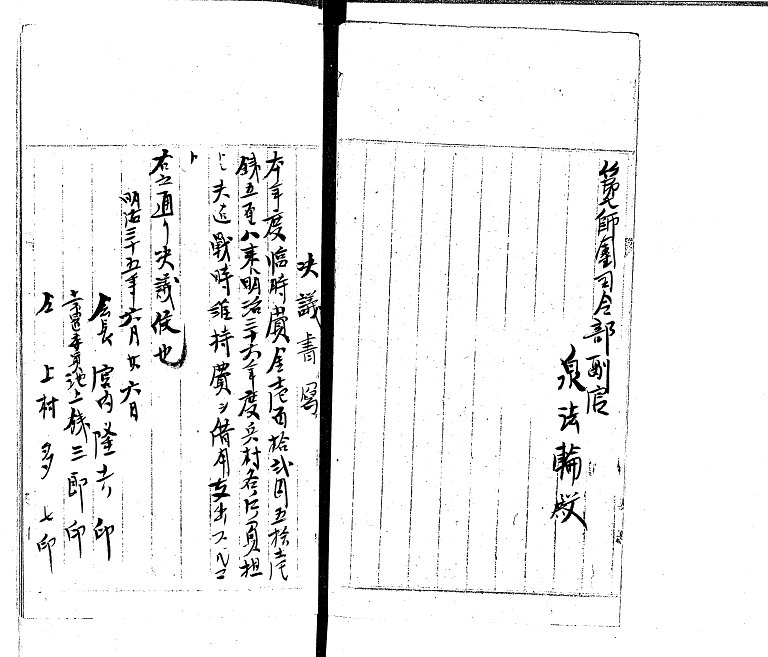 第七師団司令部副官
泉法輪殿
決議書写
本年度臨時費金壱百拾弐円五拾壱
銭五厘ハ来明治三十六年度兵村各戸負担
夫迄戦時維持費ヲ借用支出スル
右之通リ決議候也
明治三十五年六月廿六日
会長 宮内隆吉 印
常置委員 池上銭三郎 印
仝 上村多七 印